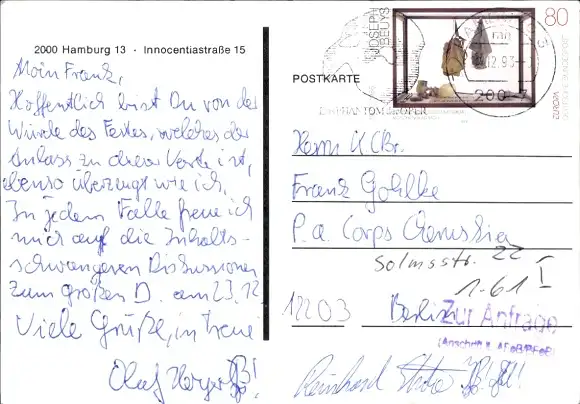 2000 Hamburg 13 · Innocentiastraße 15
Moin Frank,
Hoffentlich bist Du von der
Würde des Festes, welches der
Anlass zu dieser Karte ist,
ebenso überzeugt wie ich.
In jedem Falle freue ich
mich auf die Inhalts-
schwangeren Diskussionen
zum großen D. am 23.12
Viele Grüße, in Treue
Olaf
POSTKARTE
JOSEPH BEUYS
80
EUROPA
DEUTSCHE BUNDESPOST
12.93
200
Herrn KCBr.
Frank Gohlke
P.a. Corps
Solmsstr. 22
1-61 I
12203 Berlin
Zur Anfrage
(Anschrift
Reinhard